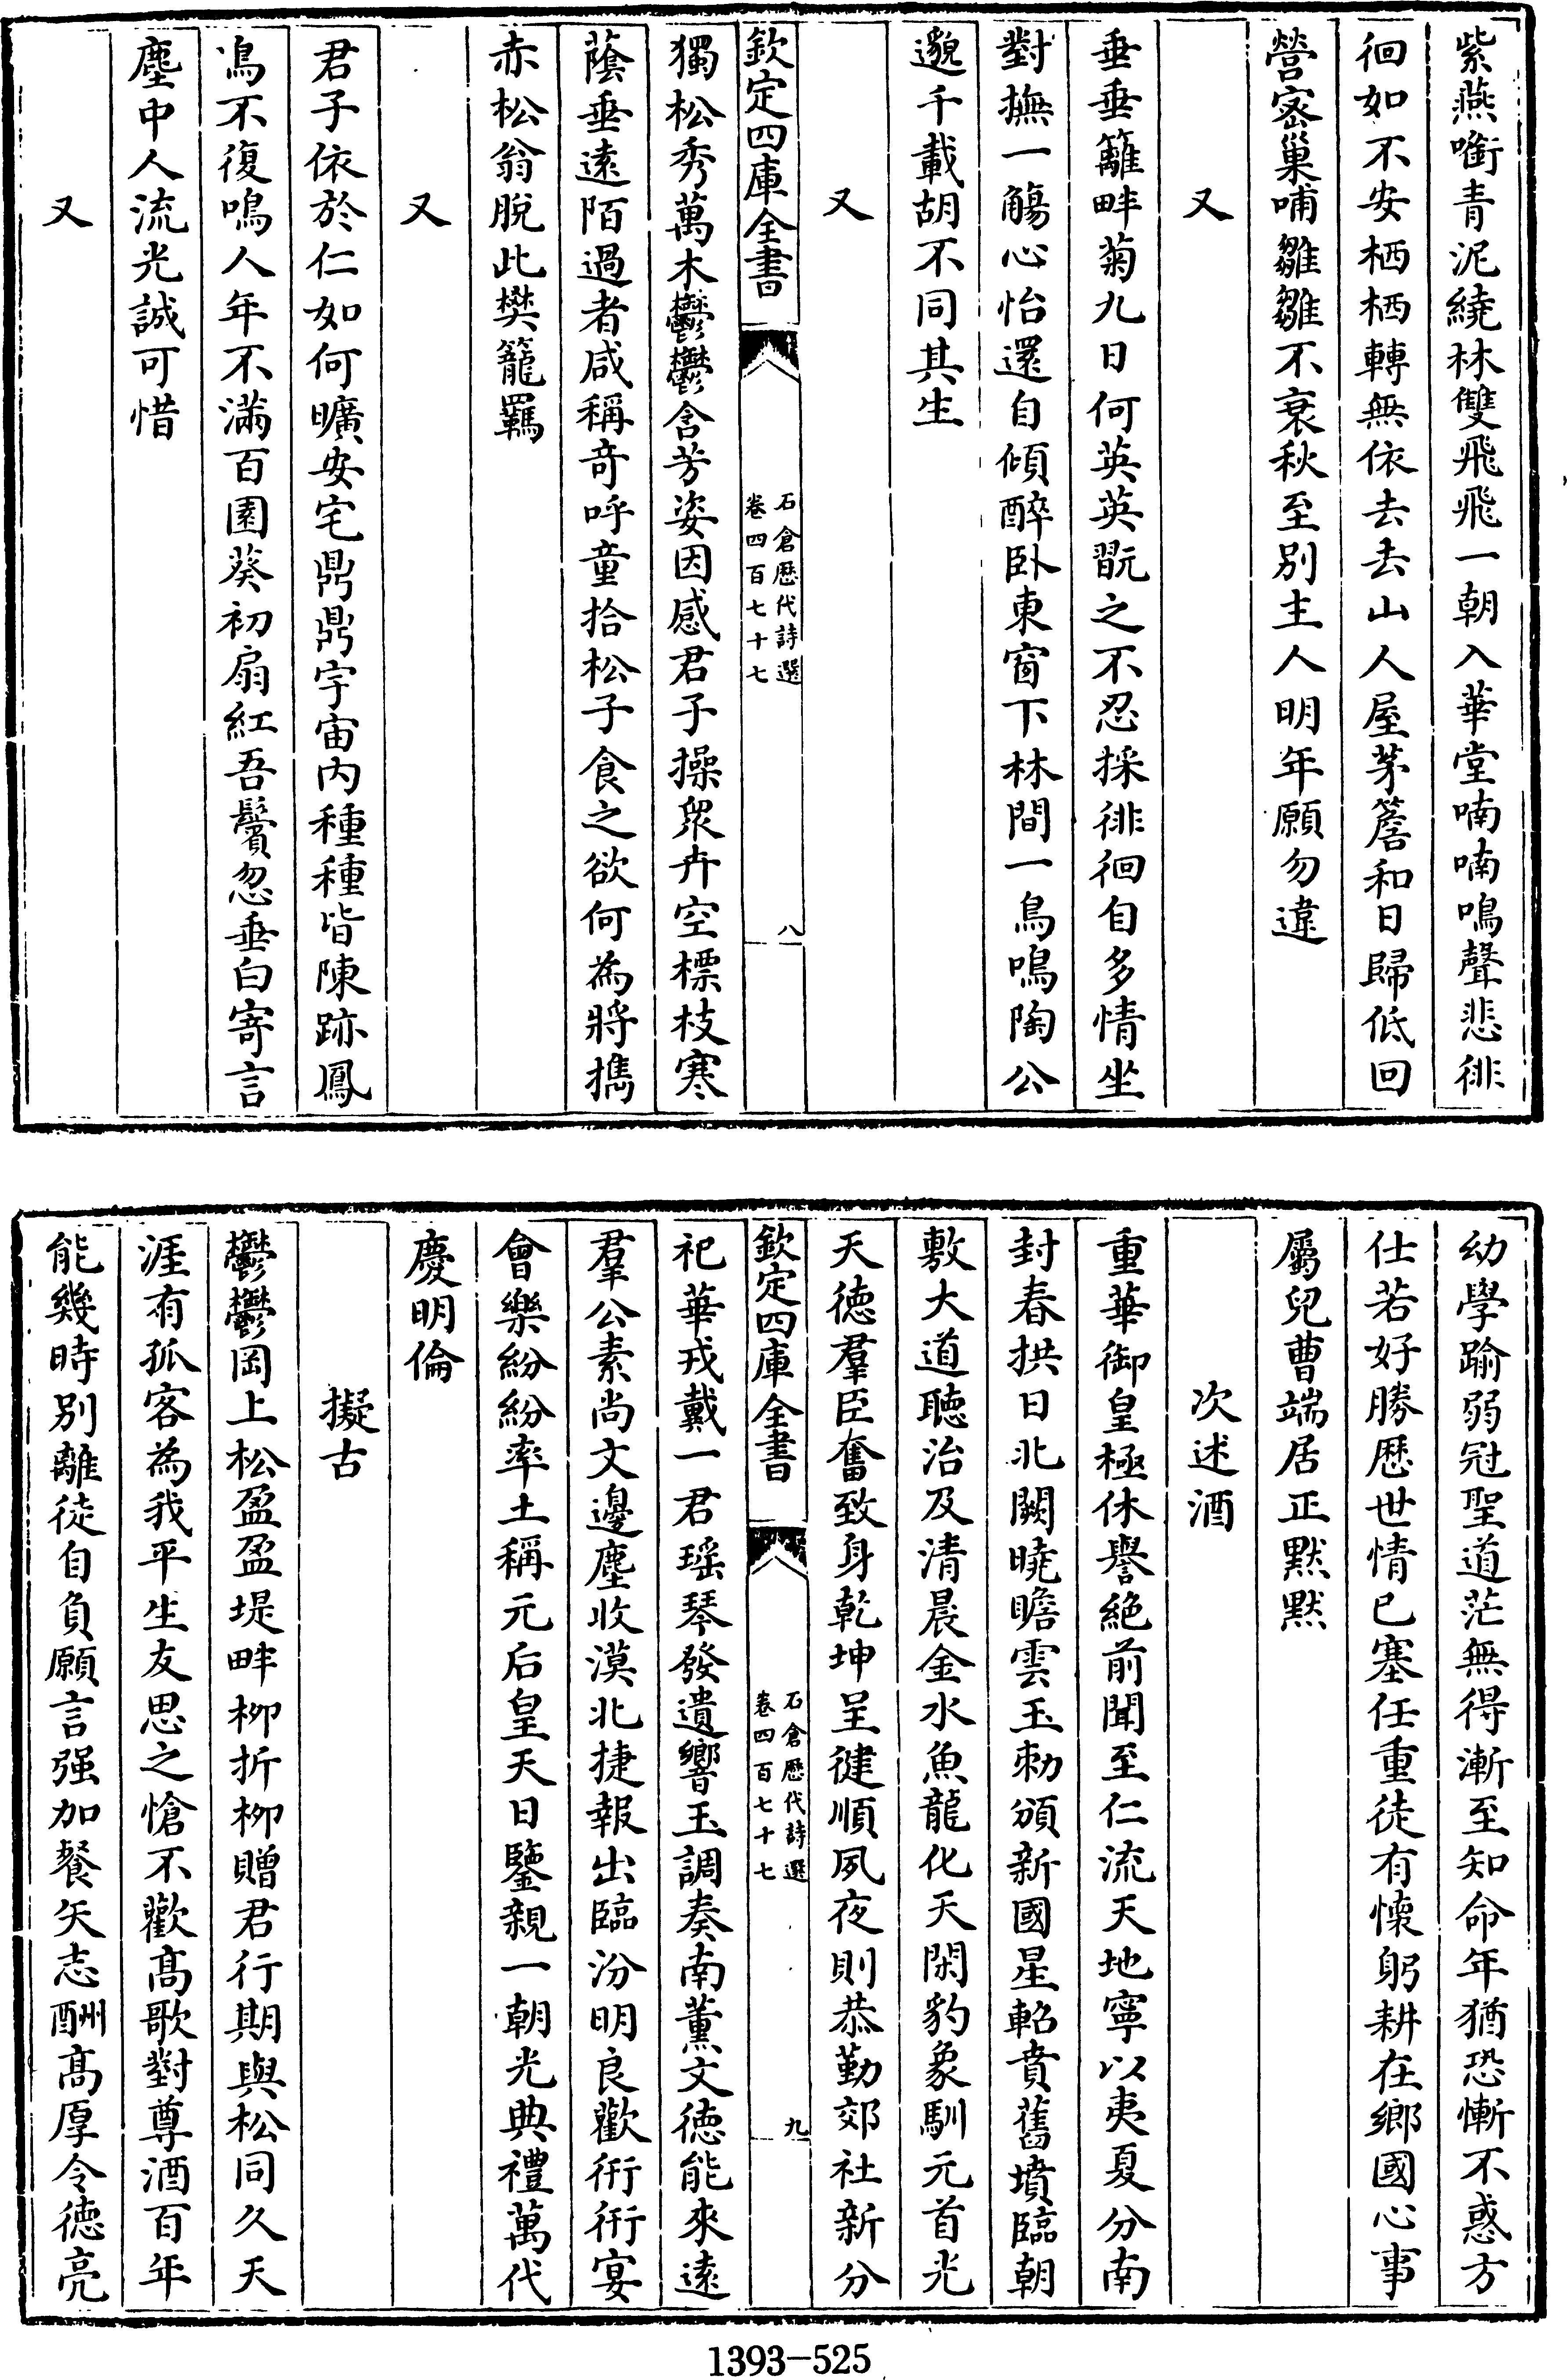 紫燕㘅青泥繞林雙飛飛一朝入華堂喃喃鳴聲悲徘
徊如不安栖栖轉無依去去山人屋茅簷和日歸低回
營宻巢哺雛雛不衰秋至別主人明年願勿違
又
垂垂籬畔菊九日何英英翫之不忍採徘徊自多情坐
對撫一觴心怡還自傾醉卧東窗下林間一鳥鳴陶公
邈千載胡不同其生
又
欽定四庫全書
石倉歴代詩選
卷四百七十七
八
獨松秀萬木鬱鬱含芳姿因感君子操衆卉空標枝寒
蔭垂遠陌過者咸稱竒呼童拾松子食之欲何為將擕
赤松翁脫此樊籠羈
又
君子依於仁如何曠安宅鼎鼎宇宙内種種皆陳跡鳳
鳥不復鳴人年不滿百園葵初扇紅吾鬢忽垂白寄言
塵中人流光誠可惜
又
幼學踰弱冠聖道茫無得漸至知命年猶恐慚不惑方
仕若好勝歴世情已塞任重徒有懷躬耕在鄉國心事
屬兒曹端居正黙黙
次述酒
重華御皇極休譽絶前聞至仁流天地寧以夷夏分南
封春拱日北闕曉瞻雲玉勅頒新國星軺賁舊墳臨朝
敷大道聴治及清晨金水魚龍化天閑豹象馴元首光
天徳羣臣奮致身乾坤呈健順夙夜則恭勤郊社新分
欽定四庫全書
石倉歴代詩選
卷四百七十七
九
祀華戎戴一君瑶琴發遺響玉調奏南薫文徳能來遠
羣公素尚文邊塵收漠北捷報出臨汾明良歡衎衎宴
會樂紛紛率土稱元后皇天日鑒親一朝光典禮萬代
慶明倫
擬古
鬱鬱岡上松盈盈堤畔柳折柳贈君行期與松同久天
涯有孤客為我平生友思之愴不歡髙歌對尊酒百年
能幾時別離徒自負願言强加餐矢志酬髙厚令徳亮
1393-525